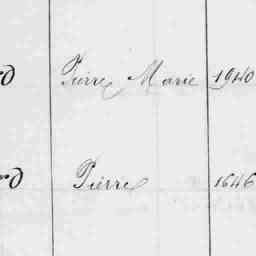 rd Pierre Marie 1940
rd Pierre 1646